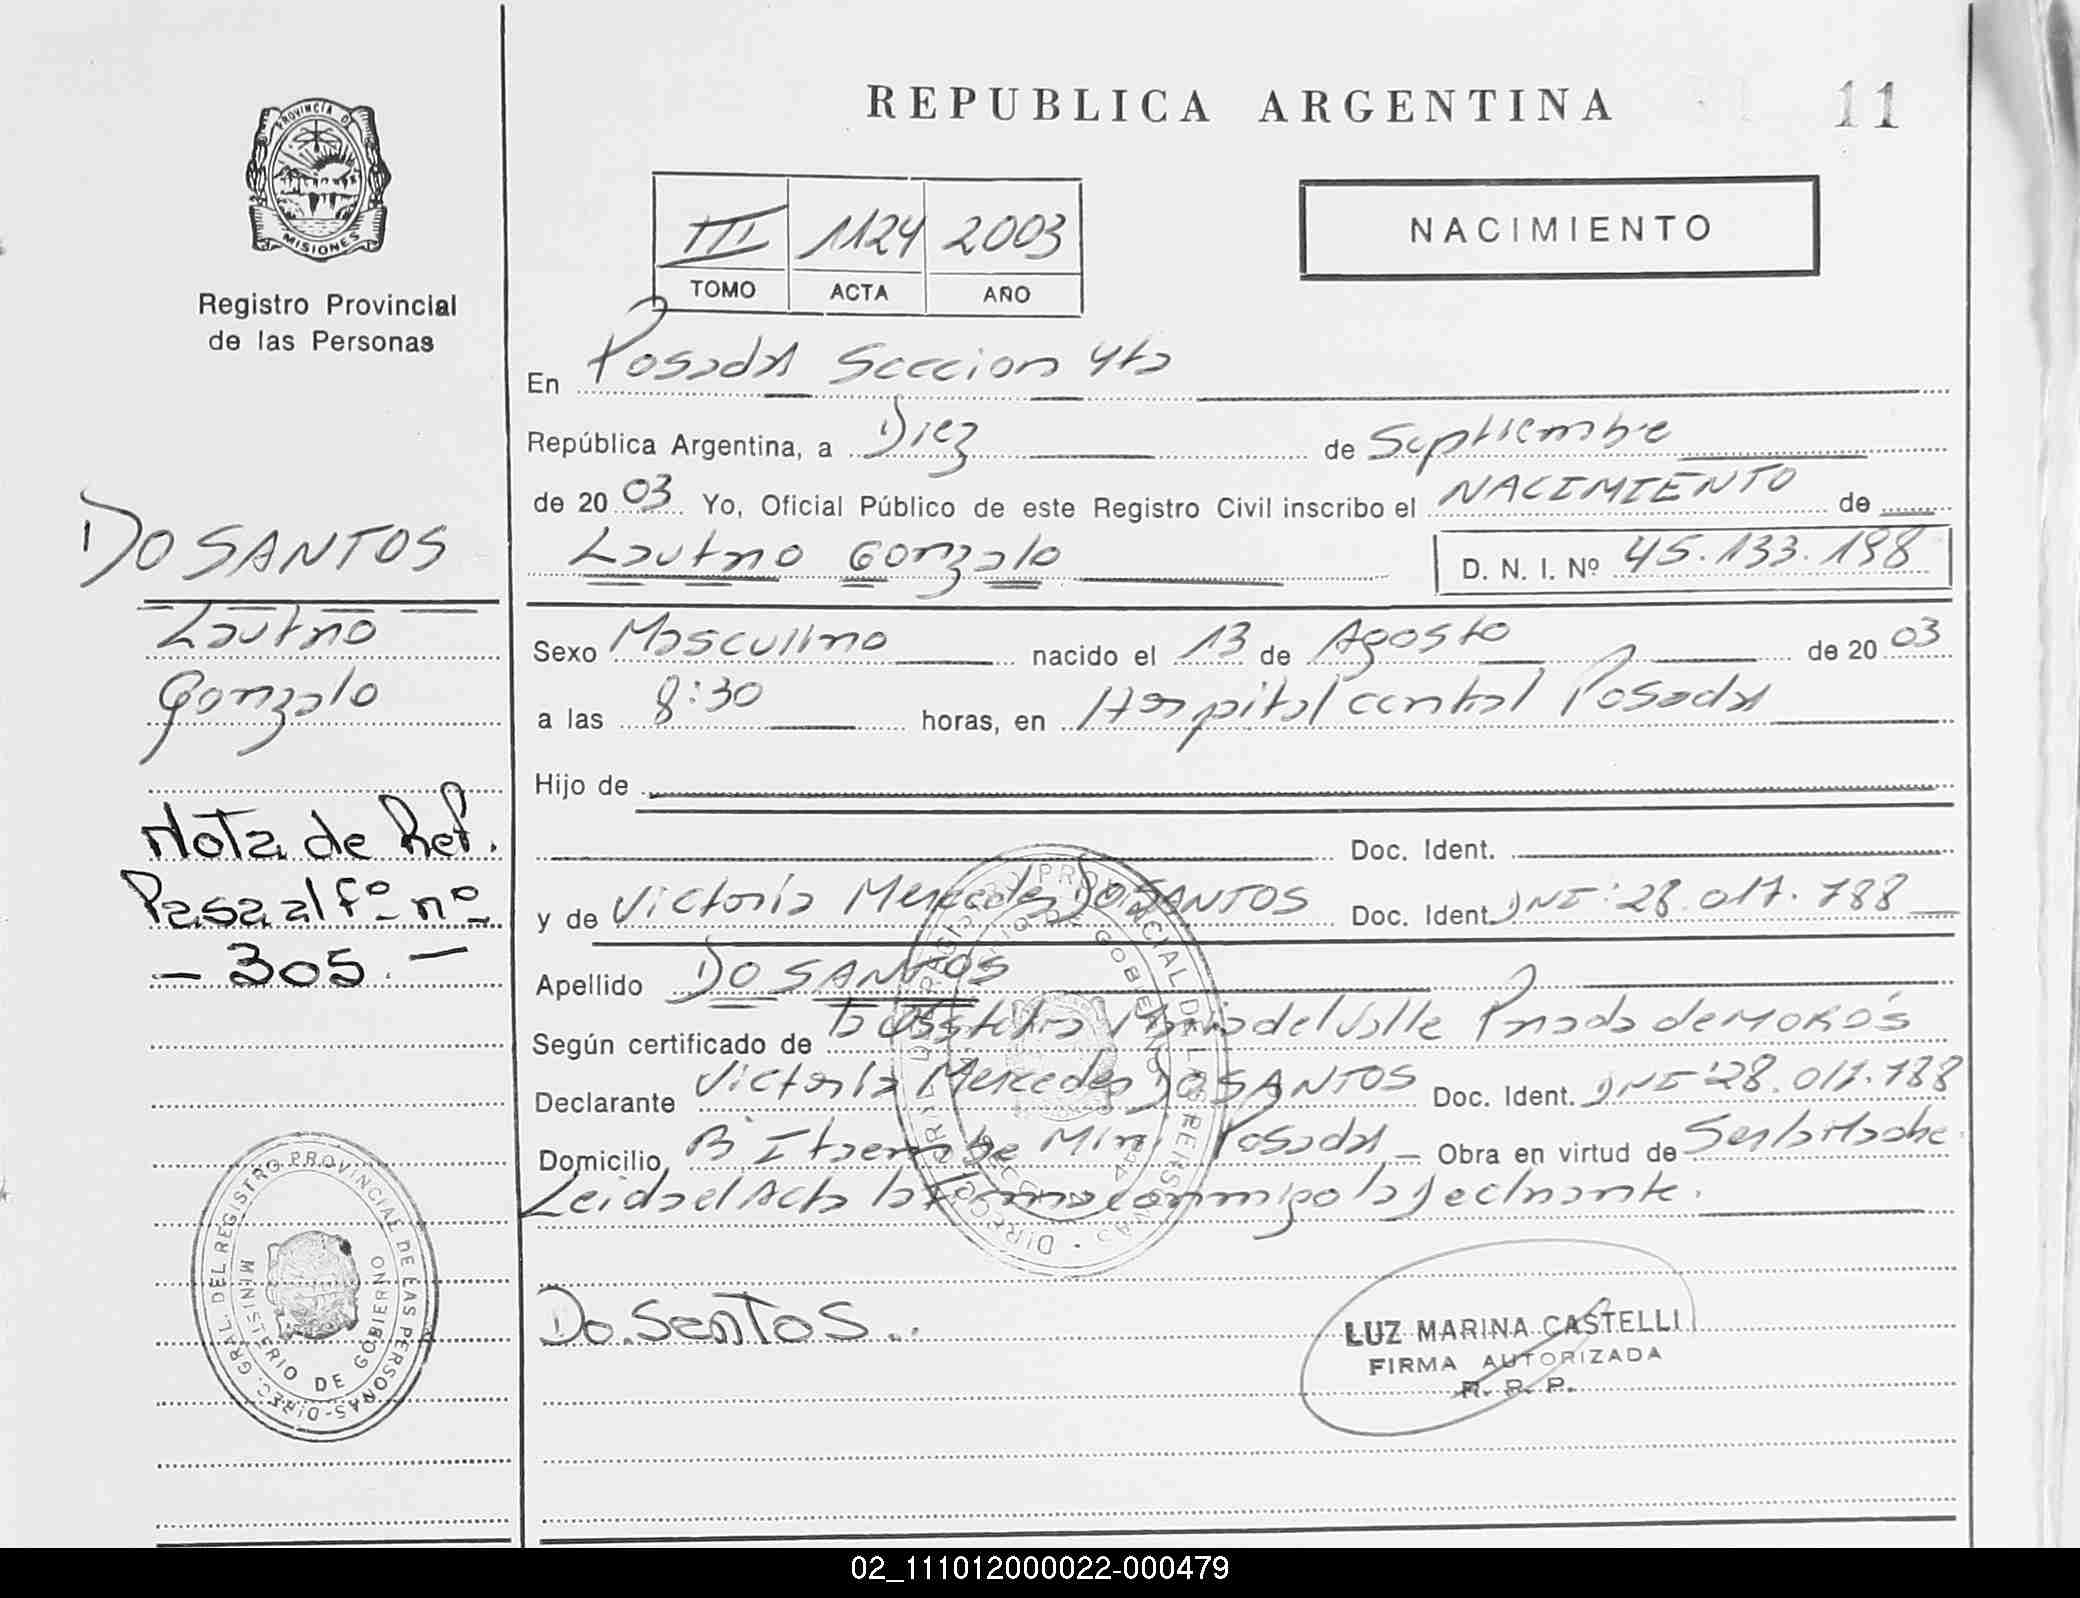 PROVINCIA D
MISIONES
Registro Provincial
de las Personas
REPUBLICA ARGENTINA
11
III 1124 2003
TOMO ACTA AÑO
NACIMIENTO
En Posadas Seccion 4ta
República Argentina, a Diez de Septiembre
de 20 03 Yo, Oficial Público de este Registro Civil inscribo el NACIMIENTO de
Lautaro Gonzalo D. N. I. Nº 45.133.198
Sexo Masculino nacido el 13 de Agosto de 20 03
a las 8:30 horas, en Hospital central Posadas
Hijo de
Doc. Ident.
y de Victoria Mercedes DO SANTOS Doc. Ident. DNI: 28.017.788
Apellido DO SANTOS
Según certificado de la María del Valle Parada de MOROS
Declarante Victoria Mercedes DO SANTOS Doc. Ident. DNI: 28.017.788
Domicilio Bº Itaembe Mini Posadas Obra en virtud de Ser la Madre
Leida el Acta la Firma conmigo la declarante.
Do.SanTos..
LUZ MARINA CASTELLI
FIRMA AUTORIZADA
R. P. P.
DO SANTOS
Lautaro
Gonzalo
Nota de Ref.
Pasa al fº nº
- 305. -
DIREC. GRAL. DEL REGISTRO PROVINCIAL DE LAS PERSONAS
MINISTERIO DE GOBIERNO
02_111012000022-000479